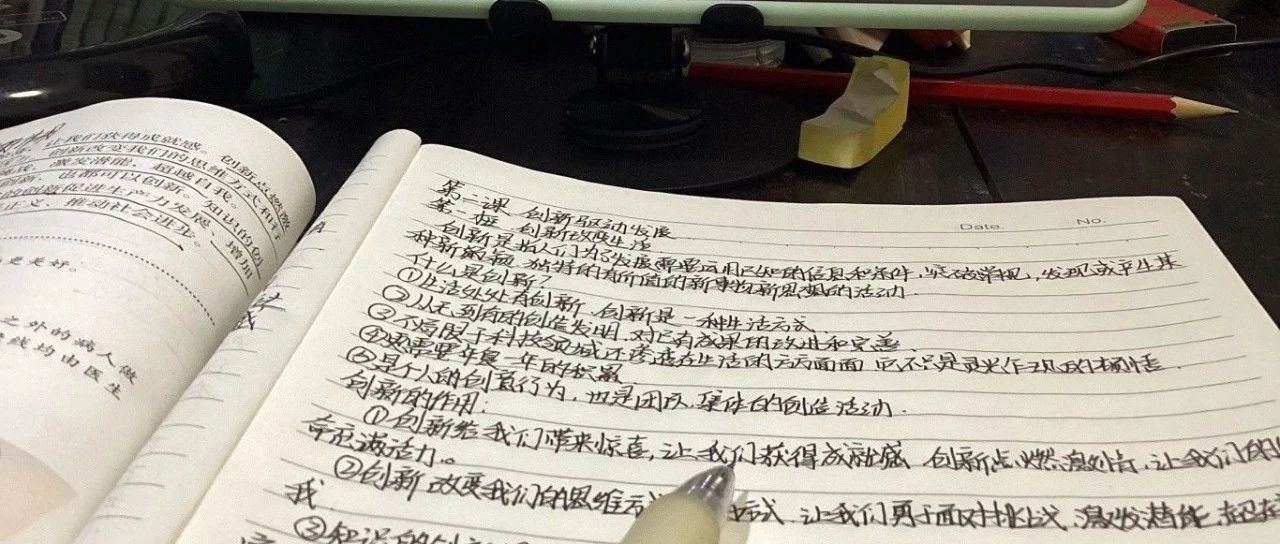 让我们获得成就感。创新点燃激
创新改变我们的思维方式和行
激发潜能、超越自我。
也都可以创新。知识的创
的创意促进生产力发展、增加
正义、推动社会进步。
更美好。
之外的病人做
线均由医生
Date. No.
第二课 创新驱动发展
第一框 创新改变生活
创新是指人们为了发展需要运用已知的信息和条件,突破常规,发现或产生某
种新颖、独特的有价值的新事物新思想的活动.
什么是创新?
①生活处处有创新,创新是一种生活方式.
②从无到有的创造发明,对已有成果的改进和完善.
③不局限于科技领域还渗透在生活的方方面面
④需要年复一年的积累 它不只是灵光乍现的顿悟.
⑤是个人的创意行为,也是团队、集体的创造活动.
创新的作用:
①创新给我们带来惊喜,让我们获得成就感 创新点燃激情,让我们的
命充满活力。
②创新改变我们的思维方 式.让我们勇于面对挑战,激发潜能,超越
我.
③知识的创